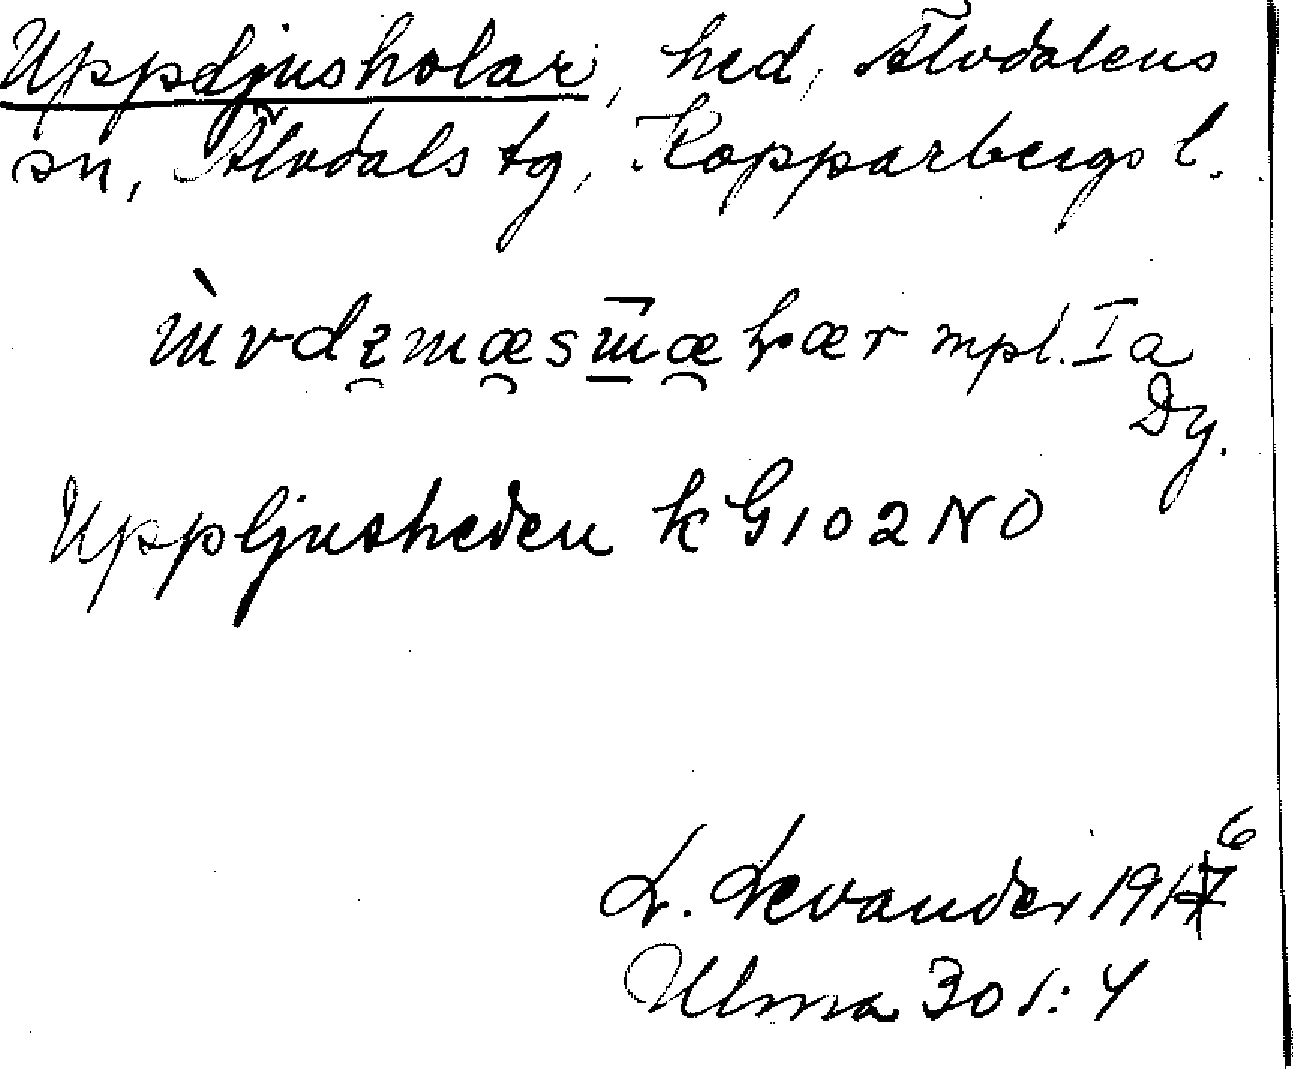 Uppdjusholar, hed, Älvdalens
sn, Älvdals tg, Kopparbergs l.
mpl. I a
Dy.
Uppljusheden k G 102 NO
L. Levander 1916
Ulma 301:4